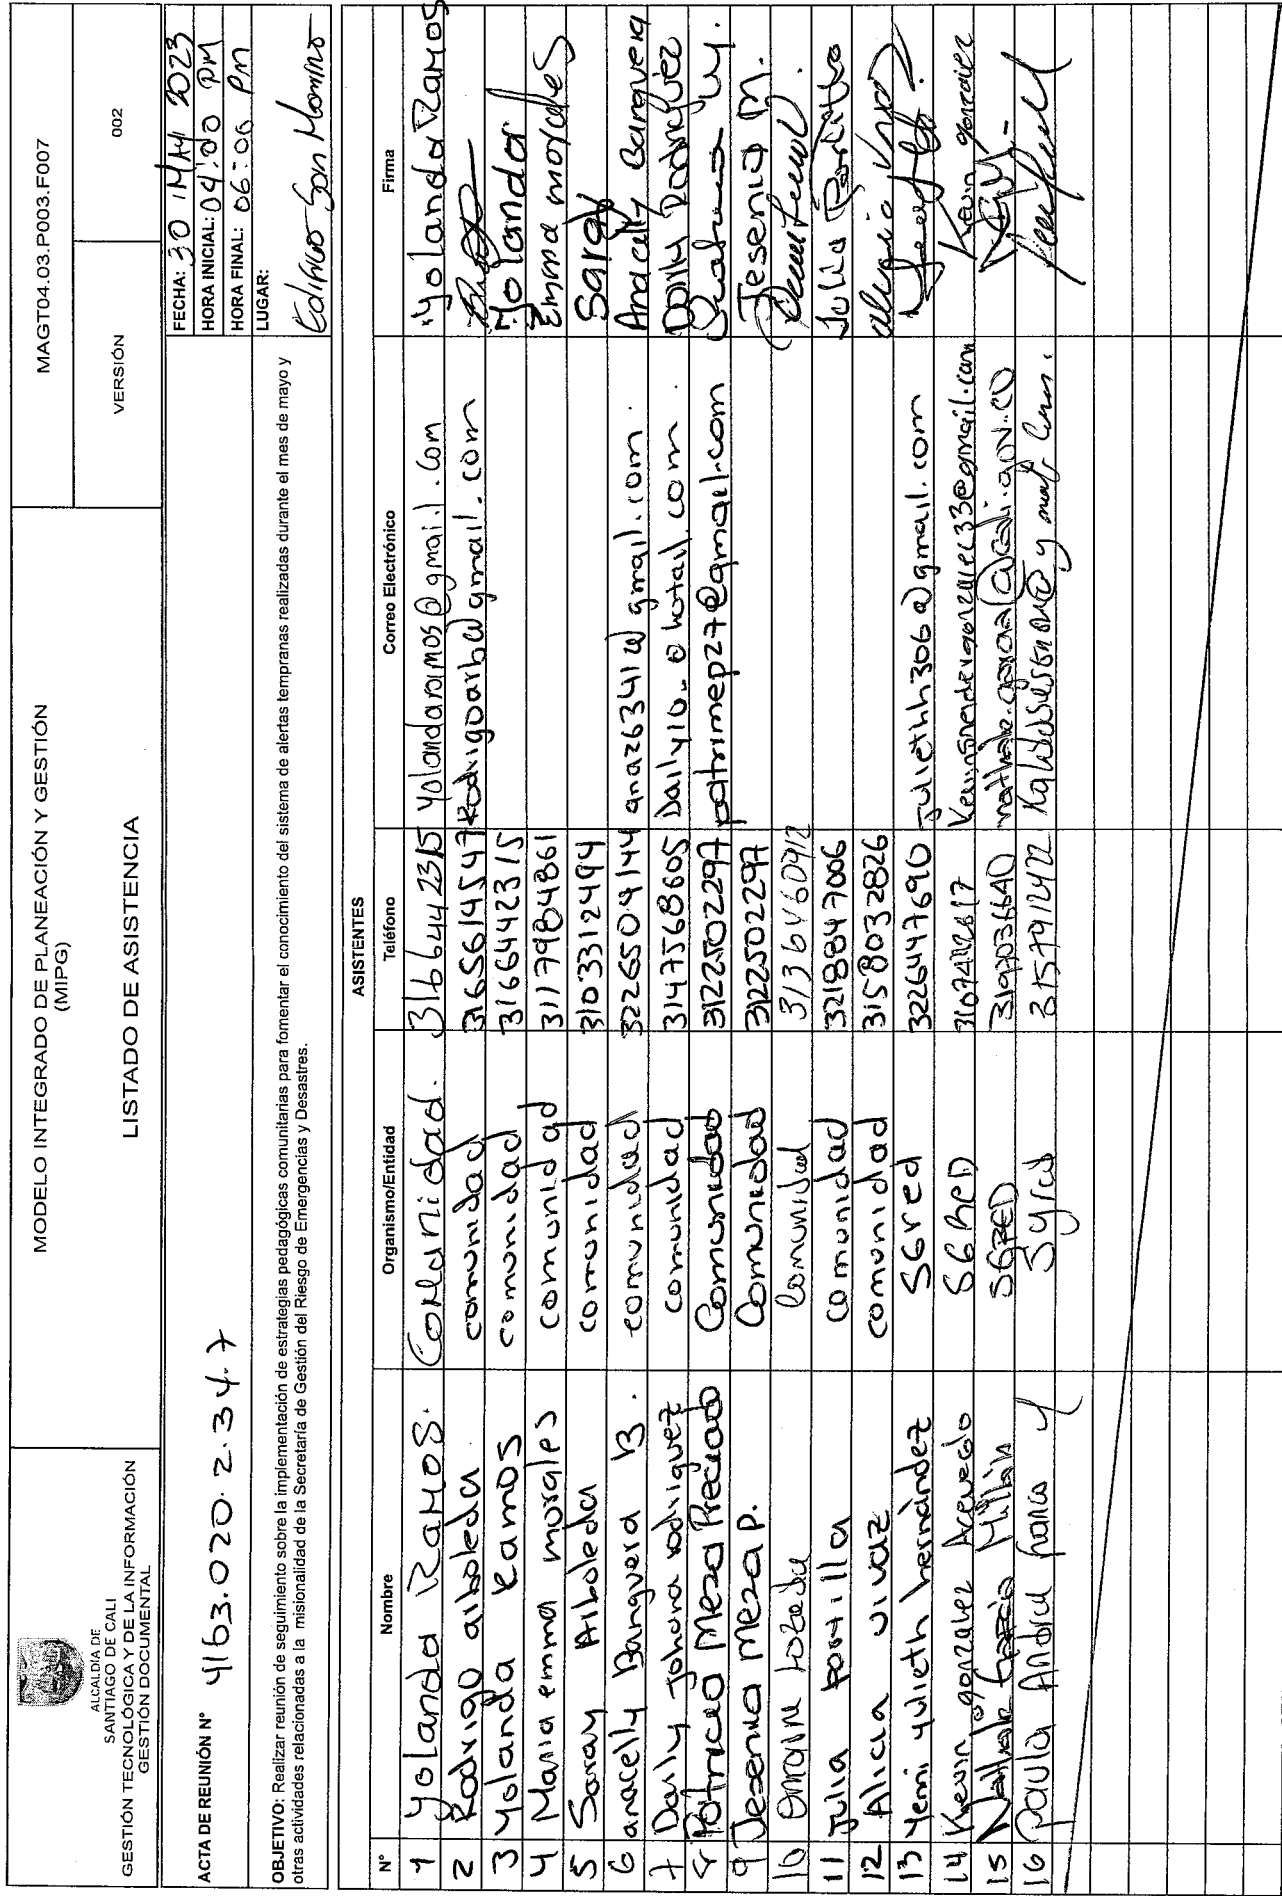 ALCALDÍA DE
SANTIAGO DE CALI
GESTIÓN TECNOLÓGICA Y DE LA INFORMACIÓN
GESTIÓN DOCUMENTAL
MODELO INTEGRADO DE PLANEACIÓN Y GESTIÓN
(MIPG)
LISTADO DE ASISTENCIA
MAGT04.03.P003.F007
VERSIÓN 002
ACTA DE REUNIÓN N° 4163.020.2.34.7
FECHA: 30 MAY 2023
HORA INICIAL: 04:00 PM
HORA FINAL: 06:00 PM
LUGAR:
Edificio San Marino
OBJETIVO: Realizar reunión de seguimiento sobre la implementación de estrategias pedagógicas comunitarias para fomentar el conocimiento del sistema de alertas tempranas realizadas durante el mes de mayo y
otras actividades relacionadas a la misionalidad de la Secretaría de Gestión del Riesgo de Emergencias y Desastres.
ASISTENTES
N° Nombre Organismo/Entidad Teléfono Correo Electrónico Firma
1 Yolanda Ramos. Comunidad. 3166442315 yolandaramos@gmail.com Yolanda Ramos
2 Rodrigo arboleda comunidad 3165614547 Rodrigoarb@gmail.com
3 Yolanda Ramos comunidad 3166442315 Yolanda
4 Maria emma morales comunidad 3117984861 Emma morales
5 Saray Arboleda comunidad 3103312494 Saray
6 anacelly Banguera B. comunidad 3226504144 ana26341@gmail.com. Anacelly Banguera
7 Daily Johana rodriguez comunidad 3147568605 Daily10_@hotail.com. Daily Rodriguez
8 Patricia Meza Preciado Comunidad 3122502297 patrimep27@gmail.com
9 Jesenia Meza P. Comunidad 3122502297 Jesenia M.
10 comunidad 3136460912
11 Julia portilla comunidad 3218847006 Julia Portilla
12 Alicia vivaz comunidad 3158032826 alicia
13 Yemi yulieth hernández SGred 3226447690 Juliethh306@gmail.com
14 Kevin gonzalez Acevedo SGRED Kevin gonzalez
15 Nathalie Millán SGRED 3197036640
16 paula Andrea franco y 3157912472